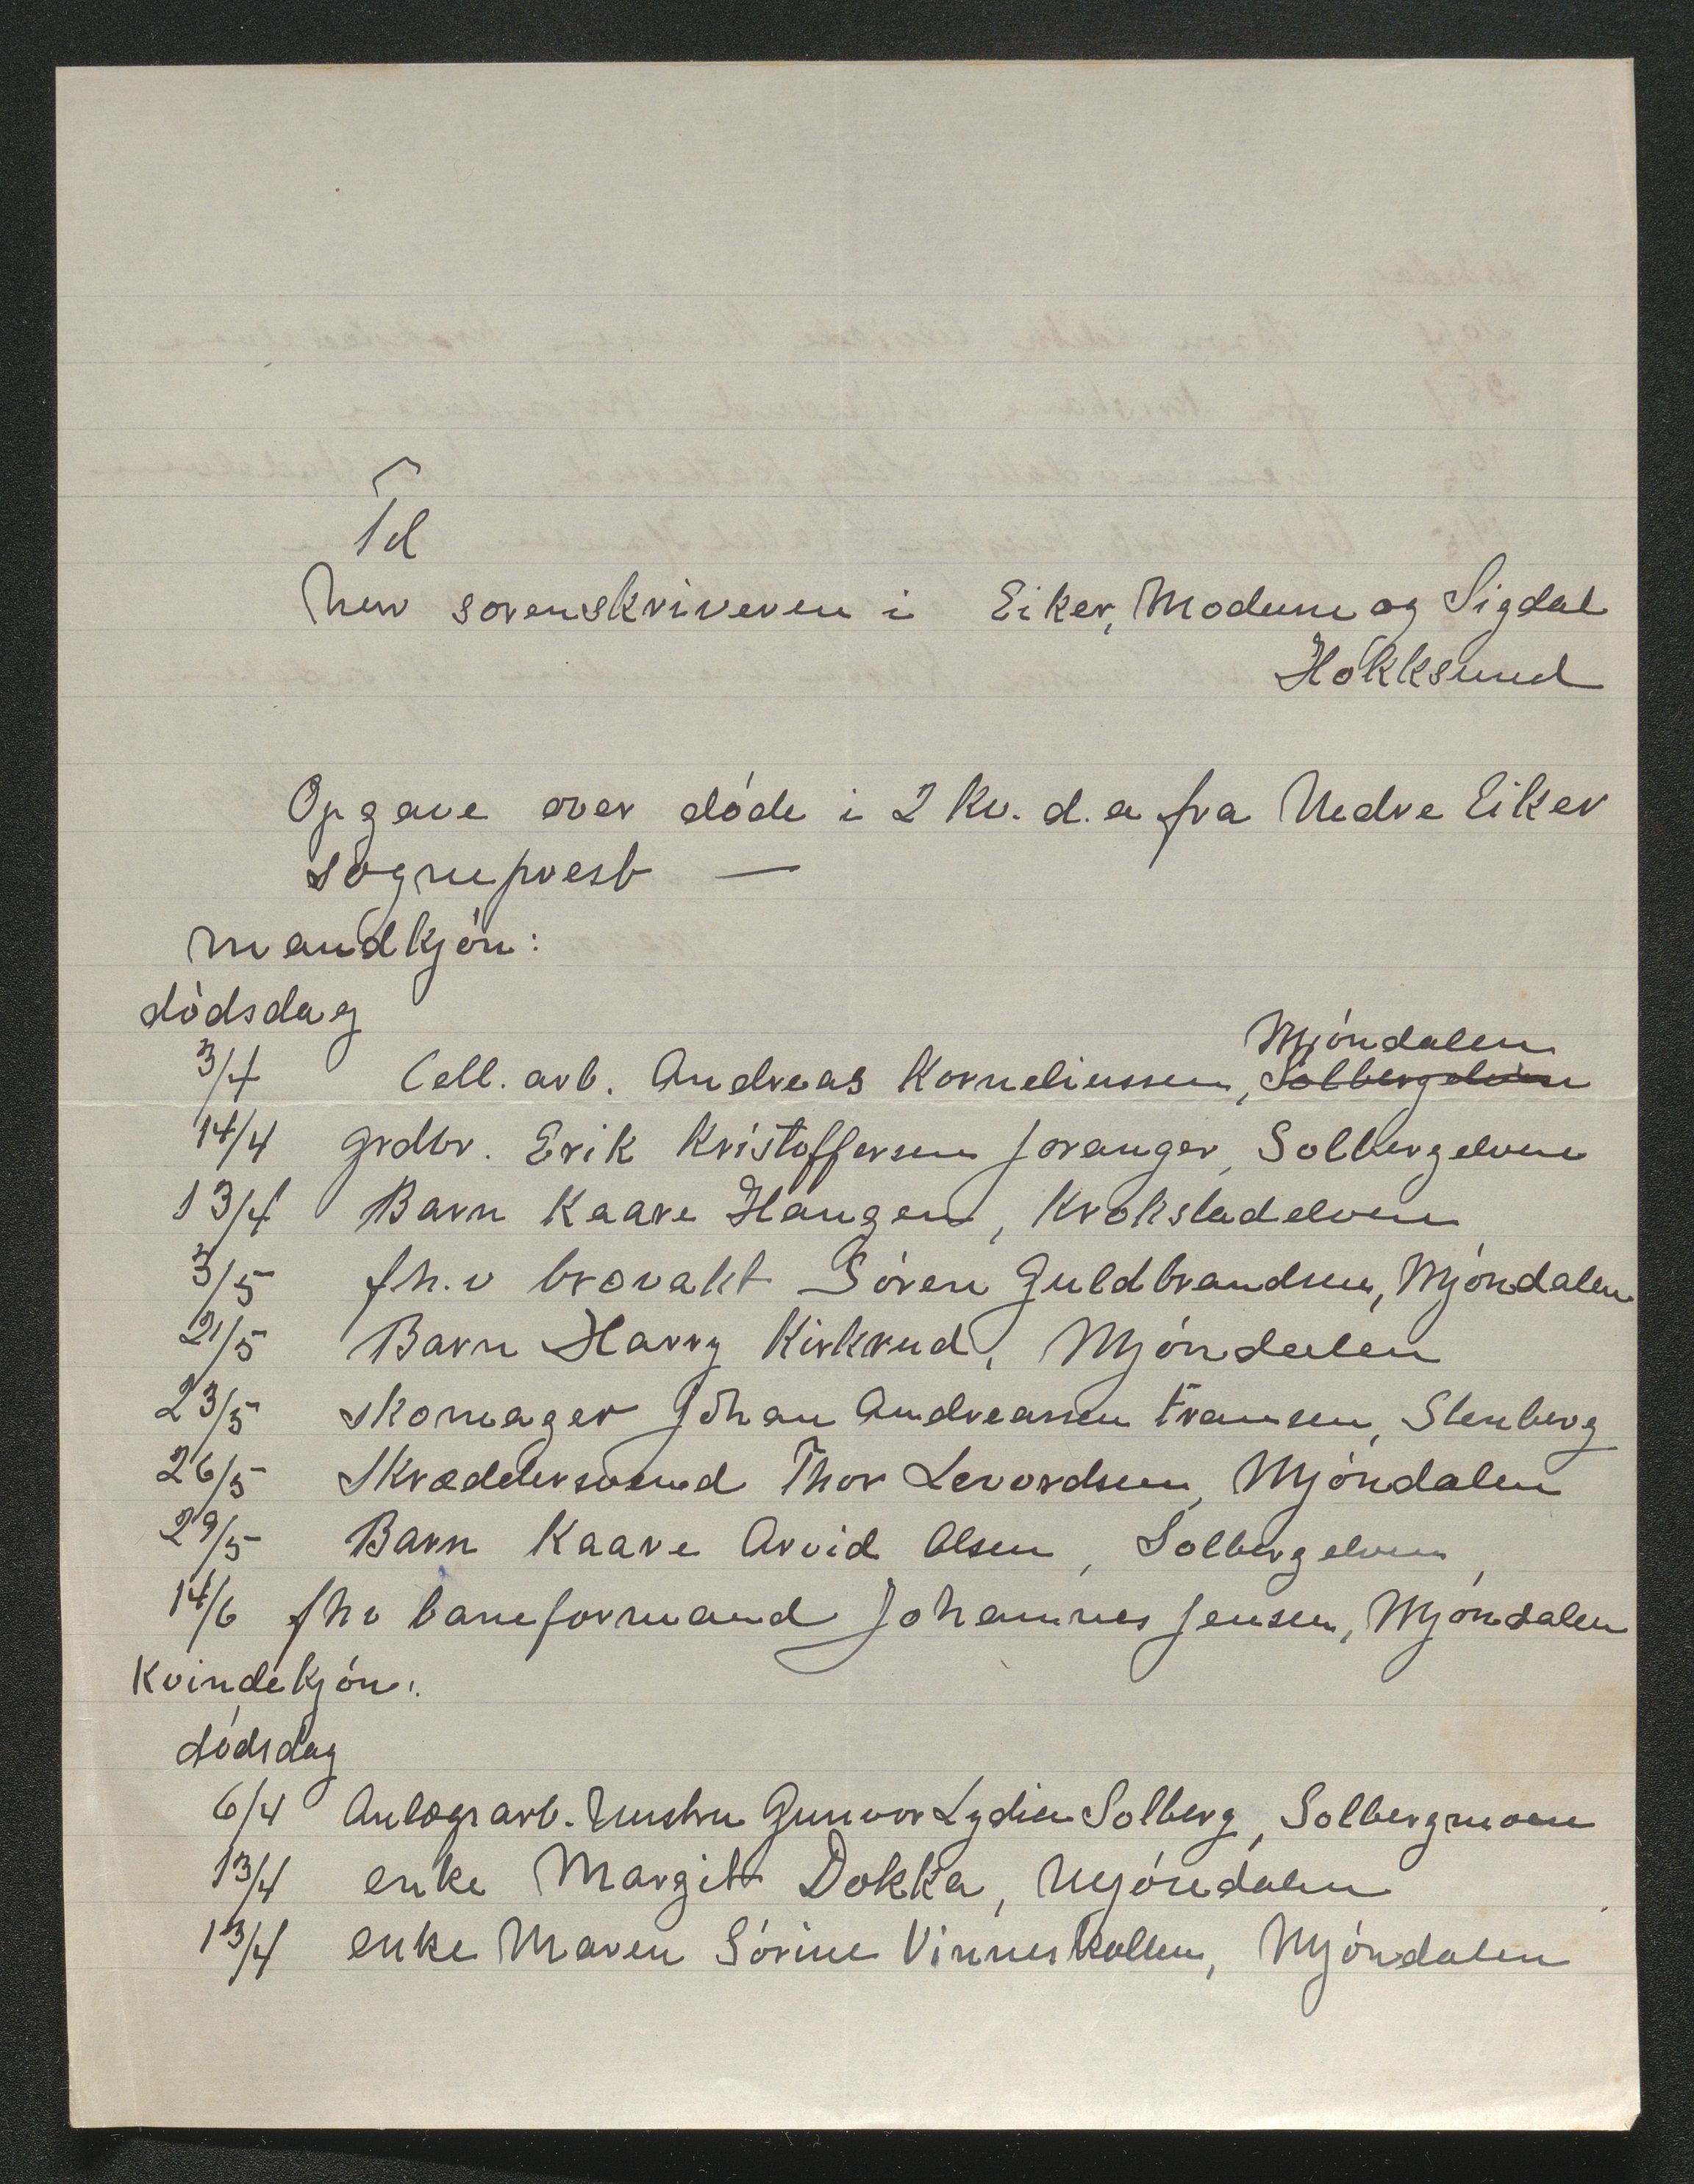 Til
Herr sorenskriveren i Eiker, Modum og Sigdal
Hokksund
Opgave over døde i 2 kv. d. a fra Nedre Eiker
sogneprest —
mandkjøn:
dødsdag
Mjøndalen
3/4 Cell. arb. Andreas Korneliussen, Solbergelven
14/4 grdbr. Erik Kristoffersen Joranger, Solbergelven
13/4 Barn Kaare Haugen, Krokstadelven
3/5 fh.v brovakt Søren Guldbrandsen, Mjøndalen
21/5 Barn Harry Kirkrud, Mjøndalen
23/5 skomager Johan Andreassen Fransen, Stenberg
26/5 Skræddersvend Thor Levordsen, Mjøndalen
29/5 Barn Kaare Arvid Olsen, Solbergelven
14/6 fhv baneformand Johannes Jensen, Mjøndalen
Kvindekjøn:
dødsdag
6/4 Anlægsarb. hustru Gunvor Lydia Solberg, Solbergmoen
13/4 enke Margit Dokka, Mjøndalen
13/4 enke Maren Sørine Vinneskollen, Mjøndalen